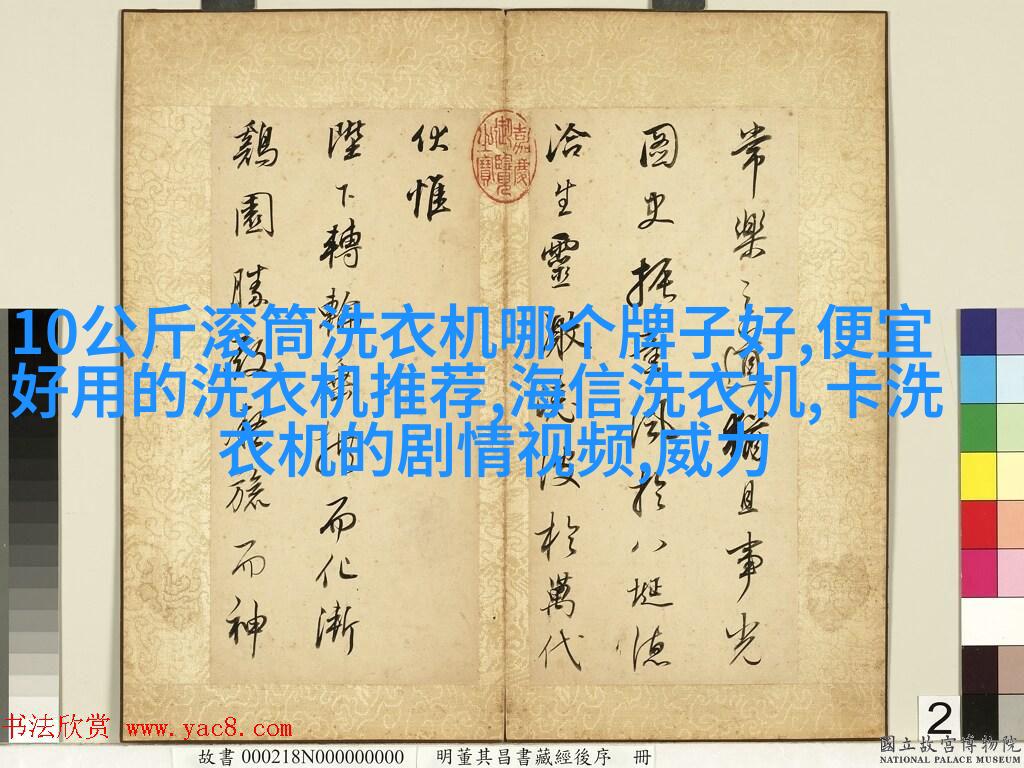 常樂之道猶且事光
圖史振皇風於八埏德
洽生靈激堯波於萬代
伏惟
陛下轉輪垂拱而化漸
鷄園勝殿凝旒而神
嘉慶御覽之寶
10公斤滚筒洗衣机哪个牌子好,便宜
好用的洗衣机推荐,海信洗衣机,卡洗
衣机的剧情视频,威力
2
书法欣赏 www.yac8.com
故書 000218N000000000 明董其昌書藏經後序 冊
國立故宮博物院
NATIONAL PALACE MUSEUM